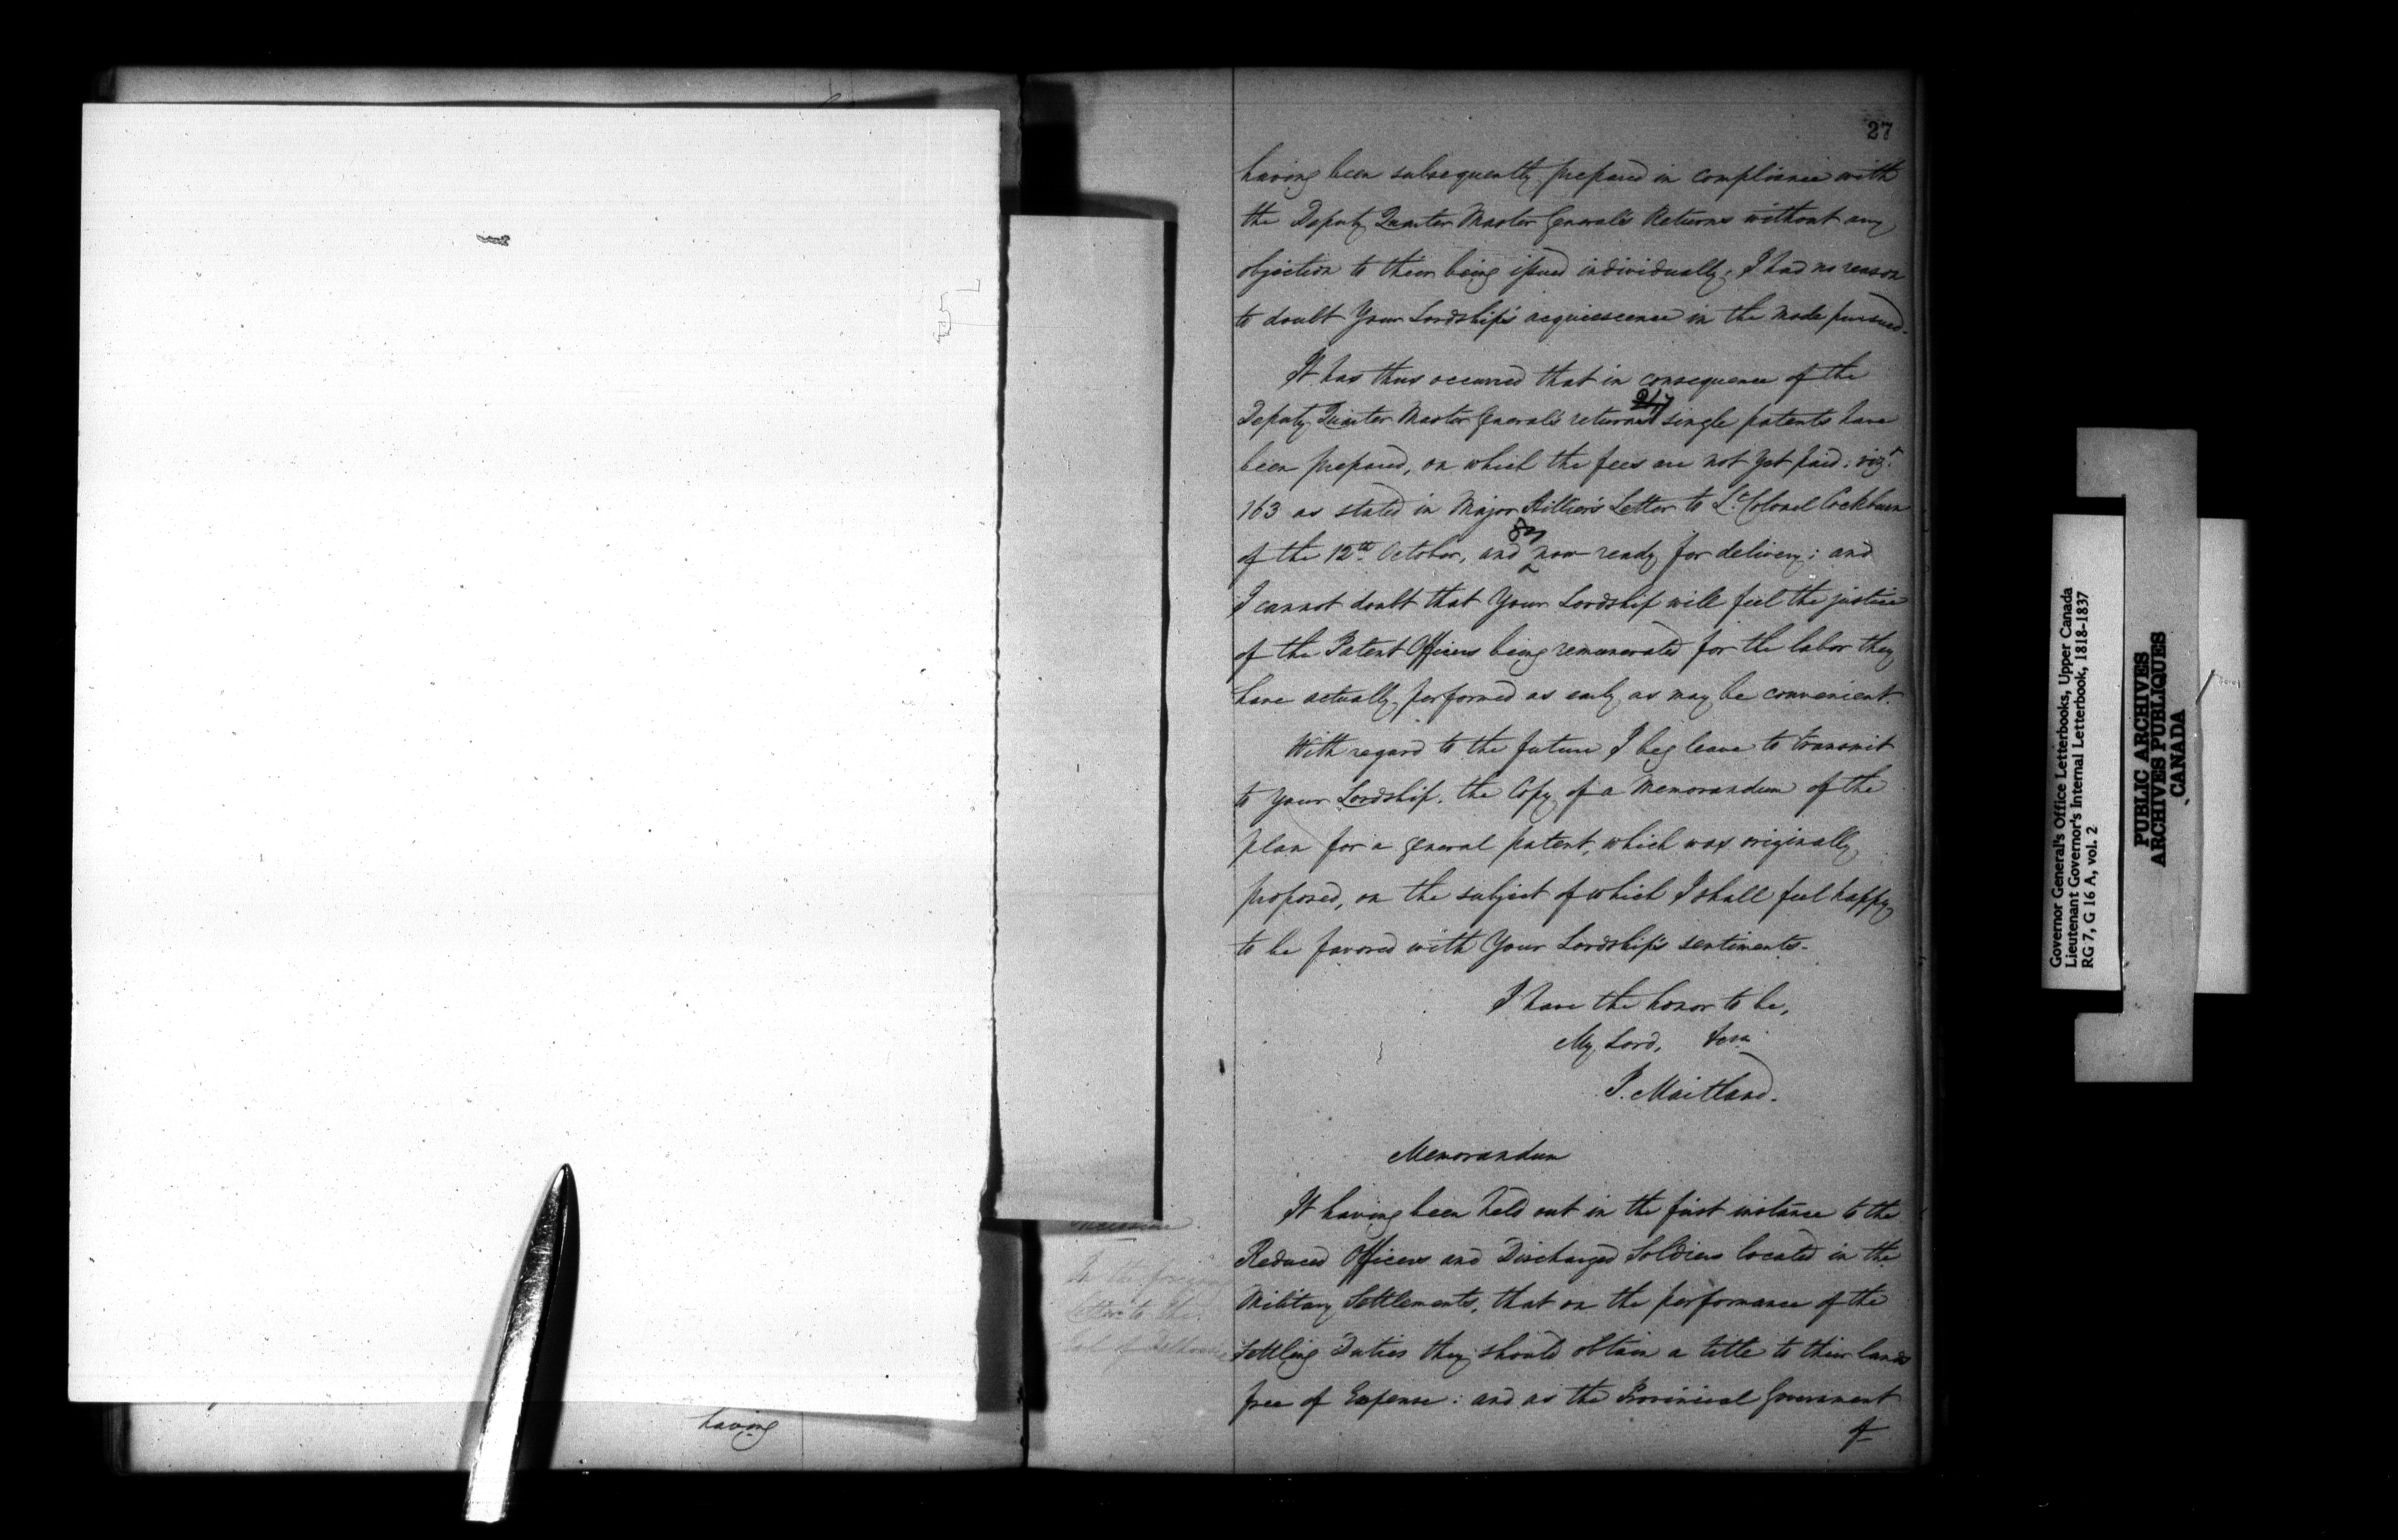 27
having been subsequently prepared in compliance with
the Deputy Quarter Master General's Returns without any
objection to their being issued individually, I had no reason
to doubt Your Lordship's acquiescence in the mode pursued.
It has thus occurred that in consequence of the
Deputy Quarter Master General's returns single patents have
been prepared, on which the fees are not yet paid; vizt
163 as stated in Major Hillier's Letter to Lt Colonel Cockburn
of the 12th October, and now ready for delivery; and
I cannot doubt that Your Lordship will feel the justice
of the Patent Officers being remunerated for the labor they
have actually performed as early as may be convenient.
With regard to the future I beg leave to transmit
to your Lordship, the Copy of a Memorandum of the
plan for a general patent, which was originally
proposed, on the subject of which I shall feel happy
to be favored with Your Lordship's sentiments.
I have the honor to be,
My Lord, &ca
P. Maitland.
Memorandum
In the foregoing
Letter to the
Earl of Dalhousie
It having been held out in the first instance to the
Reduced Officers and Discharged Soldiers located in the
Military Settlements, that on the performance of the
Settling Duties they should obtain a title to their lands
free of Expense: and as the Provincial Government
of
having
Governor General's Office Letterbooks, Upper Canada
Lieutenant Governor's Internal Letterbook, 1818-1837
RG 7, G 16 A, vol. 2
PUBLIC ARCHIVES
ARCHIVES PUBLIQUES
CANADA